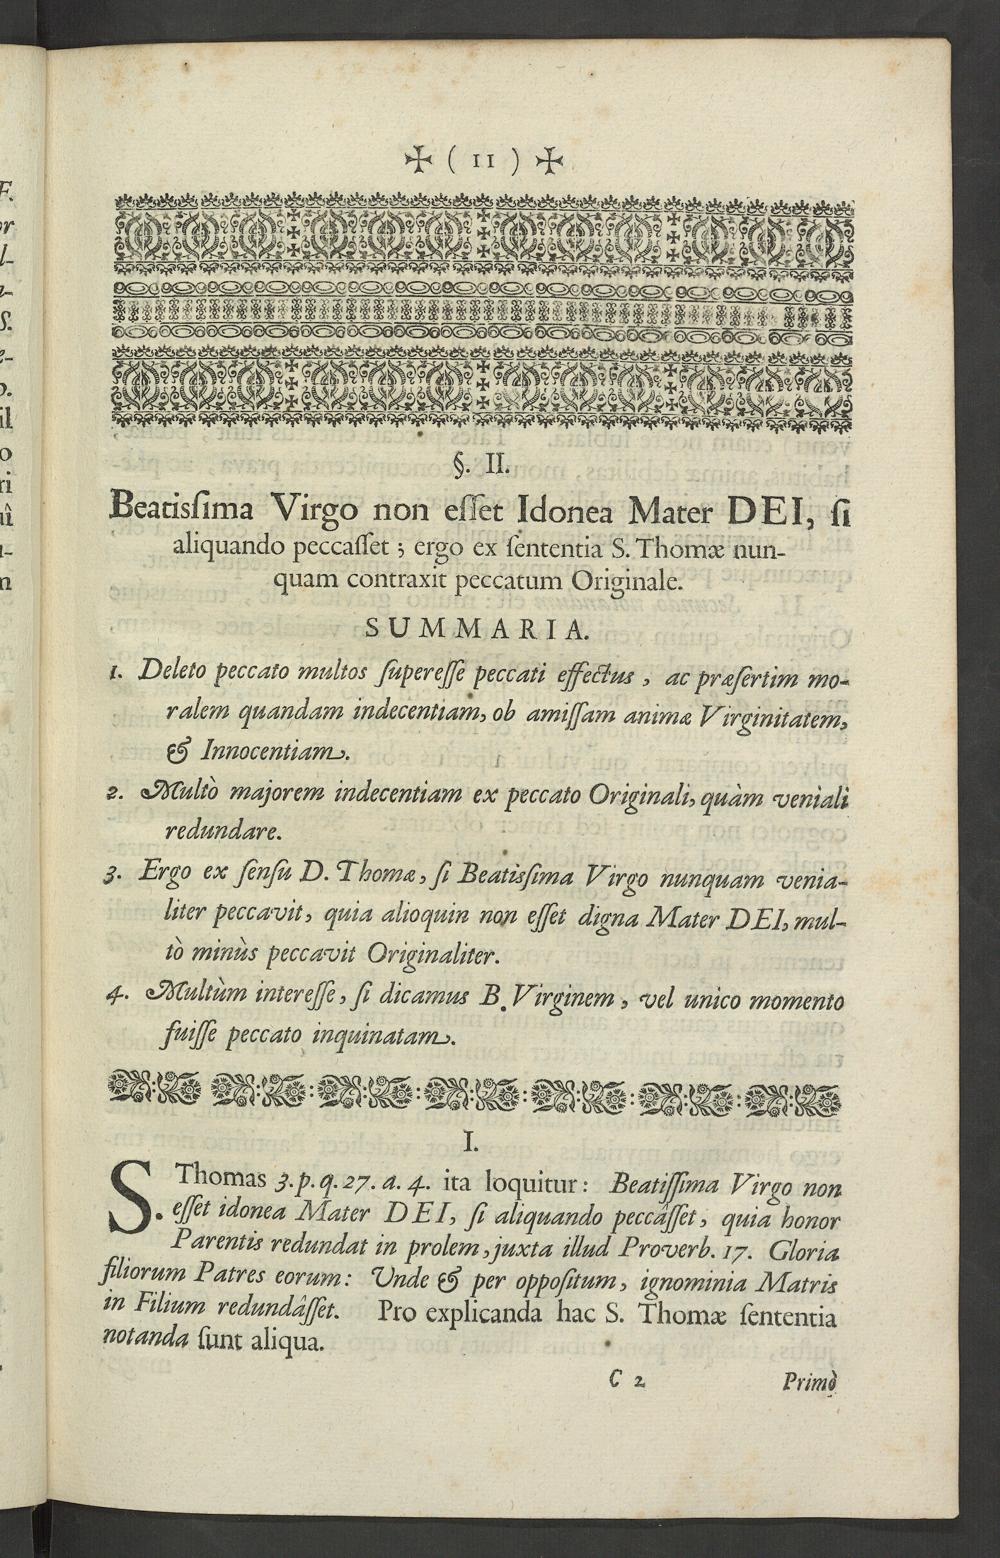 ✠ ( 11 ) ✠
§. II.
Beatisſima Virgo non eſſet Idonea Mater DEI, ſi
aliquando peccaſſet ; ergo ex ſententia S. Thomæ nun-
quam contraxit peccatum Originale.
SUMMARIA.
1. Deleto peccato multos ſupereſſe peccati effectus, ac præſertim mo-
ralem quandam indecentiam, ob amiſſam animæ Virginitatem,
& Innocentiam.
2. Multò majorem indecentiam ex peccato Originali, quàm veniali
redundare.
3. Ergo ex ſenſu D. Thomæ, ſi Beatisſima Virgo nunquam venia-
liter peccavit, quia alioquin non eſſet digna Mater DEI, mul-
tò minùs peccavit Originaliter.
4. Multùm intereſſe, ſi dicamus B. Virginem, vel unico momento
fuiſſe peccato inquinatam.
I.
S. Thomas 3. p. q. 27. a. 4. ita loquitur: Beatiſſima Virgo non
eſſet idonea Mater DEI, ſi aliquando peccâſſet, quia honor
Parentis redundat in prolem, juxta illud Proverb. 17. Gloria
filiorum Patres eorum: Unde & per oppoſitum, ignominia Matris
in Filium redundâſſet. Pro explicanda hac S. Thomæ ſententia
notanda ſunt aliqua.
C 2 Primò